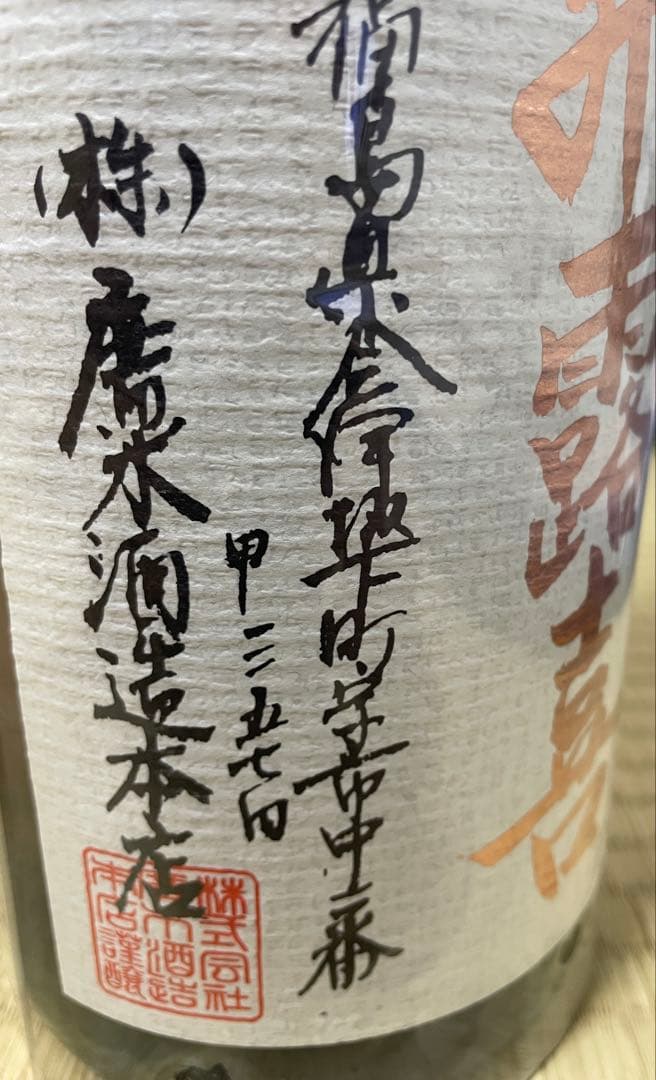 飛露喜
福島県会津坂下町字市中二番
甲三五七四
(株)廣木酒造本店
株式会社
廣木酒造
本店謹醸